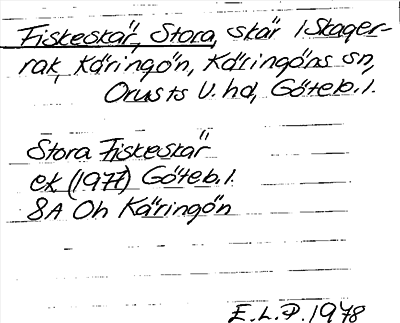 Fiskeskär, Stora, skär i Skager-
rak, Käringön, Käringöns sn,
Orusts V. hd, Göteb. l.
Stora Fiskeskär
ek (1977) Göteb. l.
8A Oh Käringön
E.L.P. 1978